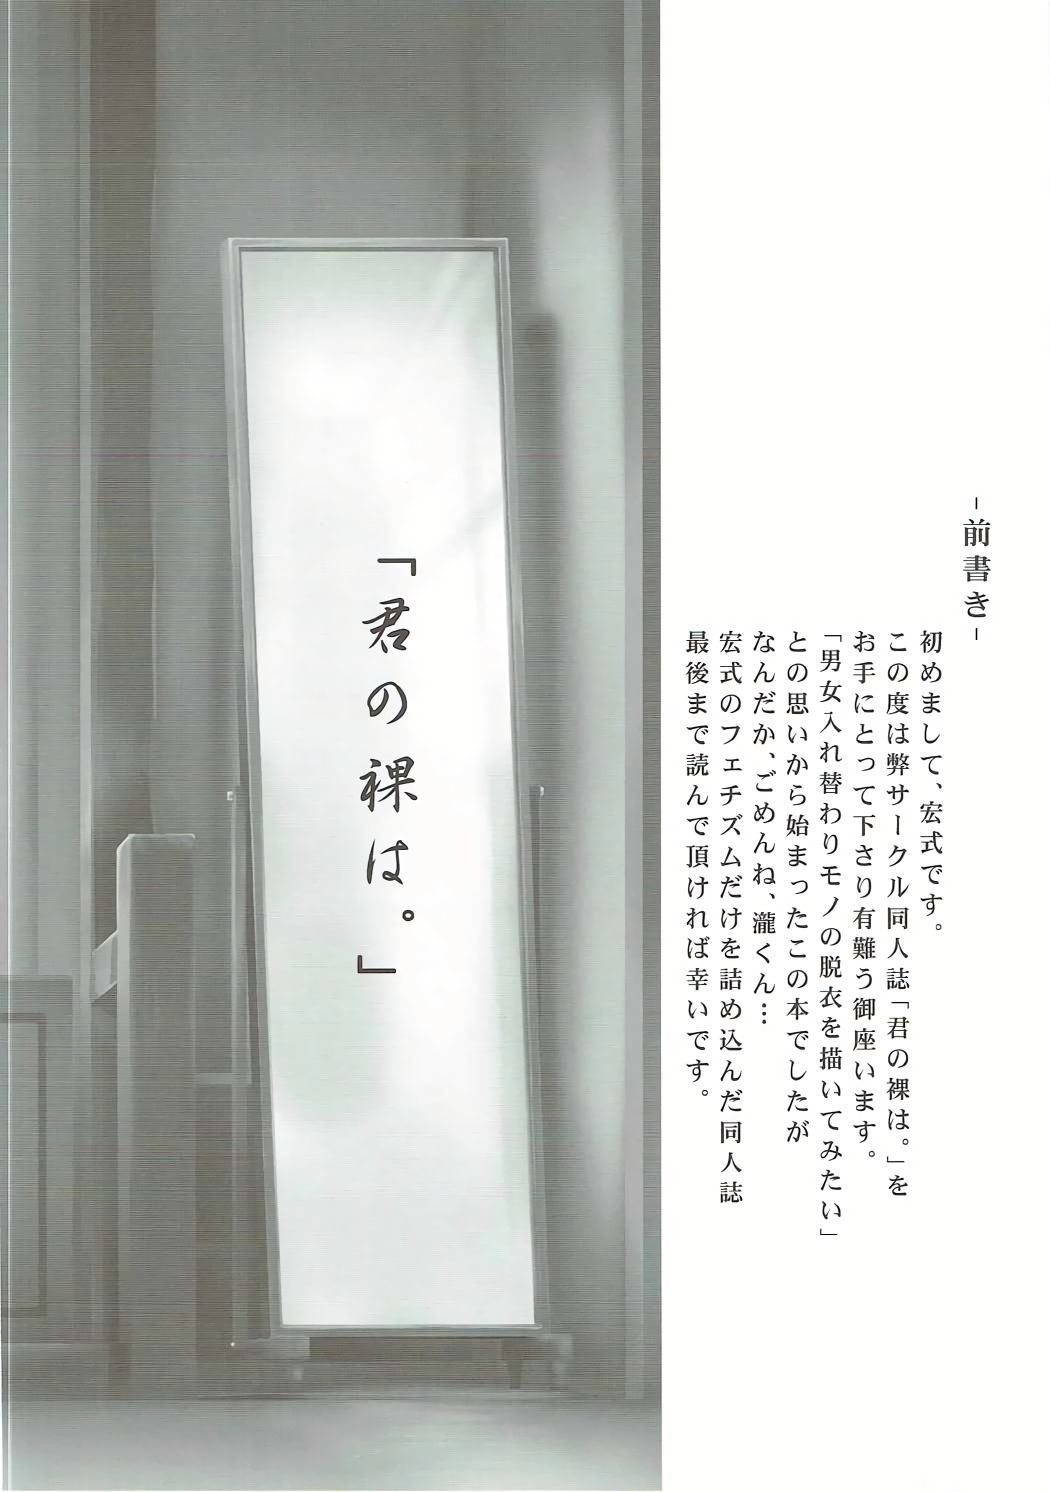 -前書き-
初めまして、宏式です。
この度は弊サークル同人誌「君の裸は。」を
お手にとって下さり有難う御座います。
「男女入れ替わりモノの脱衣を描いてみたい」
との思いから始まったこの本でしたが
なんだか、ごめんね、瀧くん…
宏式のフェチズムだけを詰め込んだ同人誌
最後まで読んで頂ければ幸いです。
「君の裸は。」